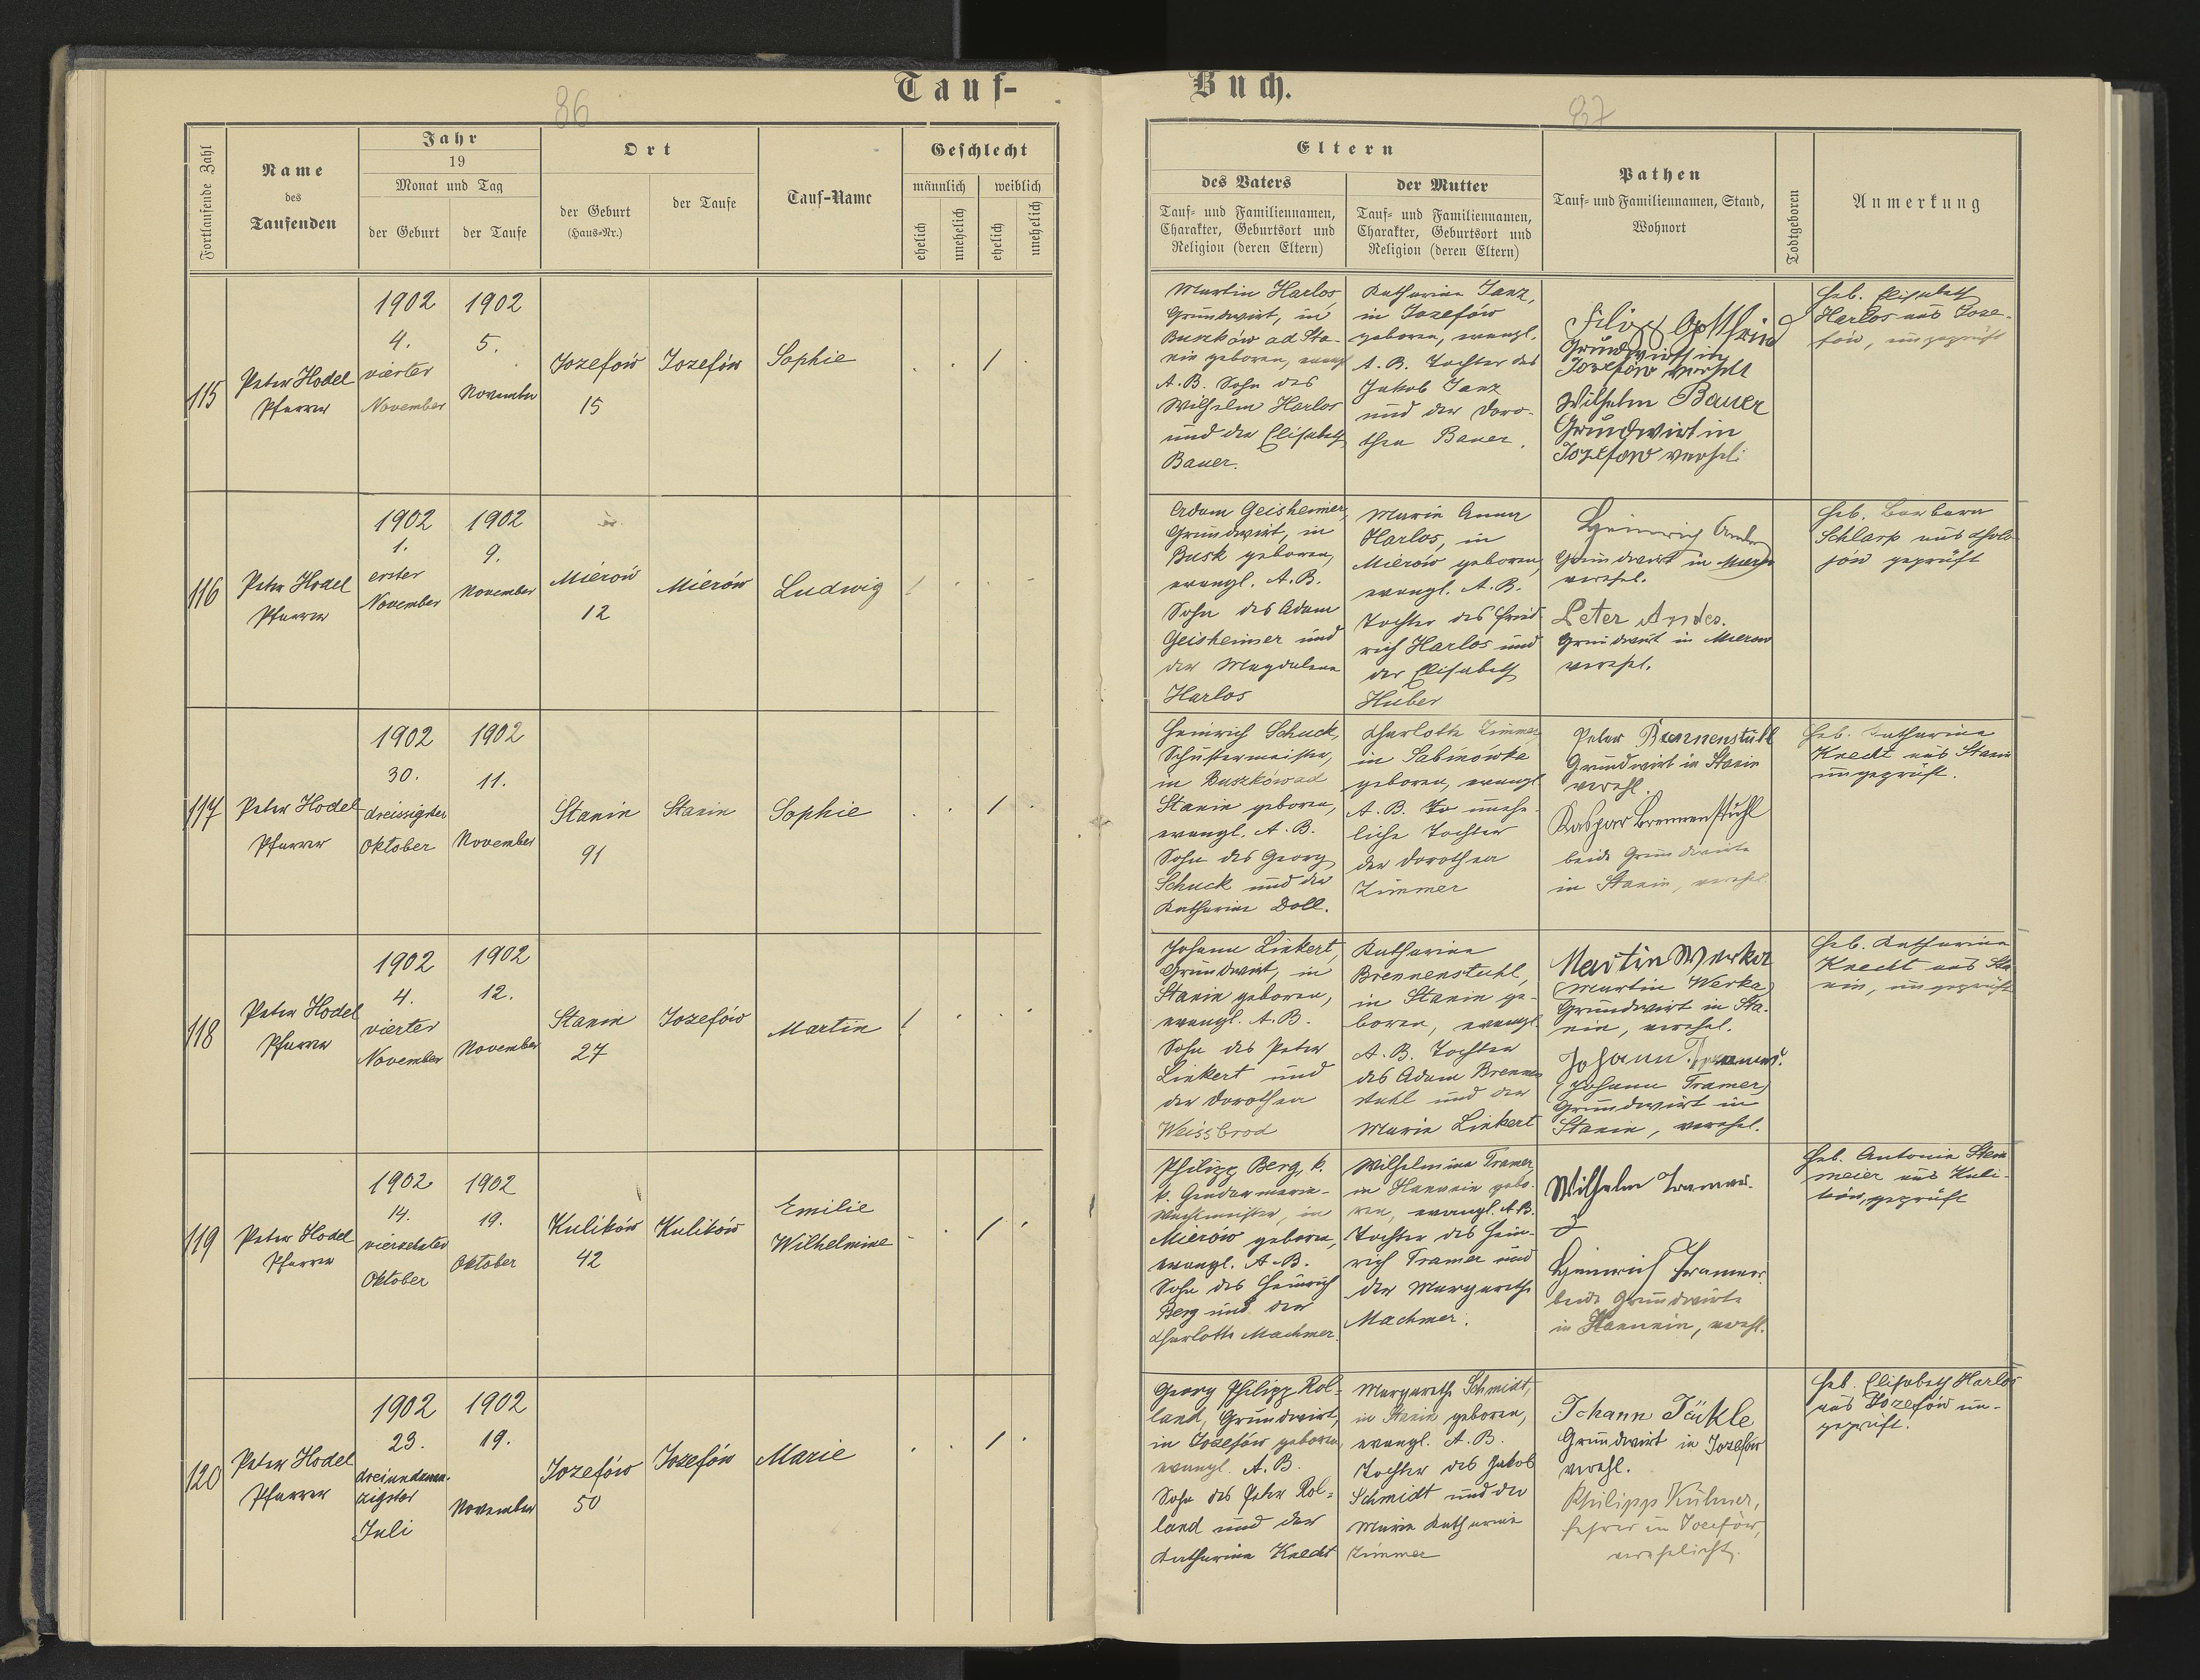 Tauf-
Buch.
86
87
Fortlaufende Zahl
Name
des
Taufenden
Jahr
19
Monat und Tag
der Geburt
der Taufe
Ort
der Geburt
(Haus-Nr.)
der Taufe
Tauf-Name
Geschlecht
männlich
weiblich
ehelich
unehelich
ehelich
unehelich
Eltern
des Vaters
Tauf- und Familiennamen,
Charakter, Geburtsort und
Religion (deren Eltern)
der Mutter
Tauf- und Familiennamen,
Charakter, Geburtsort und
Religion (deren Eltern)
Pathen
Tauf- und Familiennamen, Stand,
Wohnort
Todtgeboren
Anmerkung
115
Peter Hodel
Pfarrer
1902
4.
vierter
November
1902
5.
November
Jozefów
15
Jozefów
Sophie
Martin Harlos,
Grundwirt, in
Buszków ad Sta-
nin geboren, evangl.
A. B. Sohn des
Wilhelm Harlos
und der Elisabeth
Bauer.
Katharina Janz,
in Jozefów
geboren, evangl.
A. B. Tochter des
Jakob Janz
und der Doro-
thea Bauer.
Gottfried
Grundwirth in
Jozefow verehlt
Wilhelm Bauer
Grundwirt in
Jozefow verehl.
Heb. Elisabeth
Harlos aus Joze-
fów, ungeprüft
116
Peter Hodel
Pfarrer
1902
1.
erster
November
1902
9.
November
Mierów
12
Mierów
Ludwig
Adam Geisheimer,
Grundwirt, in
Busk geboren,
evangl. A. B.
Sohn des Adam
Geisheimer und
der Magdalena
Harlos
Maria Anna
Harlos, in
Mierów geboren,
evangl. A. B.
Tochter des Fried
rich Harlos und
der Elisabeth
Huber
Heinrich
Grundwirt in Mierow
verehel.
Peter Andes.
Grundwirt in Mierow
verehel.
Heb. Barbara
Schlarp aus
jów geprüft
117
Peter Hodel
Pfarrer
1902
30.
dreissigster
Oktober
1902
11.
November
Stanin
91
Stanin
Sophie
Heinrich Schuck,
Schustermeister,
in Buszków ad
Stanin geboren,
evangl. A. B.
Sohn des Georg
Schuck und der
Katharina Doll.
Charlotte Zimmer
in Sabinówka
geboren, evangl.
A. B. unehe-
liche Tochter
der Dorothea
Zimmer
Peter Brennenstuhl
Grundwirt in Stanin
verehl.
Kaspar Brennenstuhl
beide Grundwirte
in Stanin, verehel.
Heb. Katharina
Knecht aus Stanin
ungeprüft.
118
Peter Hodel
Pfarrer
1902
4.
vierter
November
1902
12.
November
Stanin
27
Jozefów
Martin
Johann Linkert,
Grundwirt, in
Stanin geboren,
evangl. A. B.
Sohn des Peter
Linkert und
der Dorothea
Weissbrod
Katharina
Brennenstuhl,
in Stanin ge-
boren, evangl.
A. B. Tochter
des Adam Brennen
stuhl und der
Maria Linkert
Martin Werka
(Martin Werka)
Grundwirt in Sta-
nin, verehel.
Johann
(Johann Tramer)
Grundwirt in
Stanin, verehel.
Heb. Katharina
Knecht aus Sta
nin, ungeprüft
119
Peter Hodel
Pfarrer
1902
14.
vierzehnter
Oktober
1902
19.
Oktober
Kulików
42
Kulików
Emilie
Wilhelmine
Philipp Berg, k.
k. Gendarmerie-
Wachtmeister, in
Mierów geboren,
evangl. A. B.
Sohn des Heinrich
Berg und der
Charlotte Machmer.
Wilhelmina Tramer,
in Hanunin gebo-
ren, evangl. A. B.
Tochter des Hein-
rich Tramer und
der Margarethe
Machmer.
Wilhelm Tramer.
Heinrich Tramer.
beide Grundwirte
in Hanunin, verehl.
Heb. Antonia Stein
meier aus Kuli-
ków, geprüft
120
Peter Hodel
Pfarrer
1902
23.
dreiundzwan-
zigster
Juli
1902
19.
November
Jozefów
50
Jozefów
Marie
Georg Philipp Rol-
land, Grundwirt,
in Jozefów geboren,
evangl. A. B.
Sohn des Peter Rol-
land und der
Katharina Knecht
Margareth Schmidt,
in Stanin geboren,
evangl. A. B.
Tochter des Jakob
Schmidt und der
Maria Katharina
Zimmer
Johann Jäkle
Grundwirt in Jozefów
verehl.
Philipp Kühner,
Lehrer in Jozefów,
verehelicht.
Heb. Elisabeth Harlos
aus Jozefów un-
geprüft.